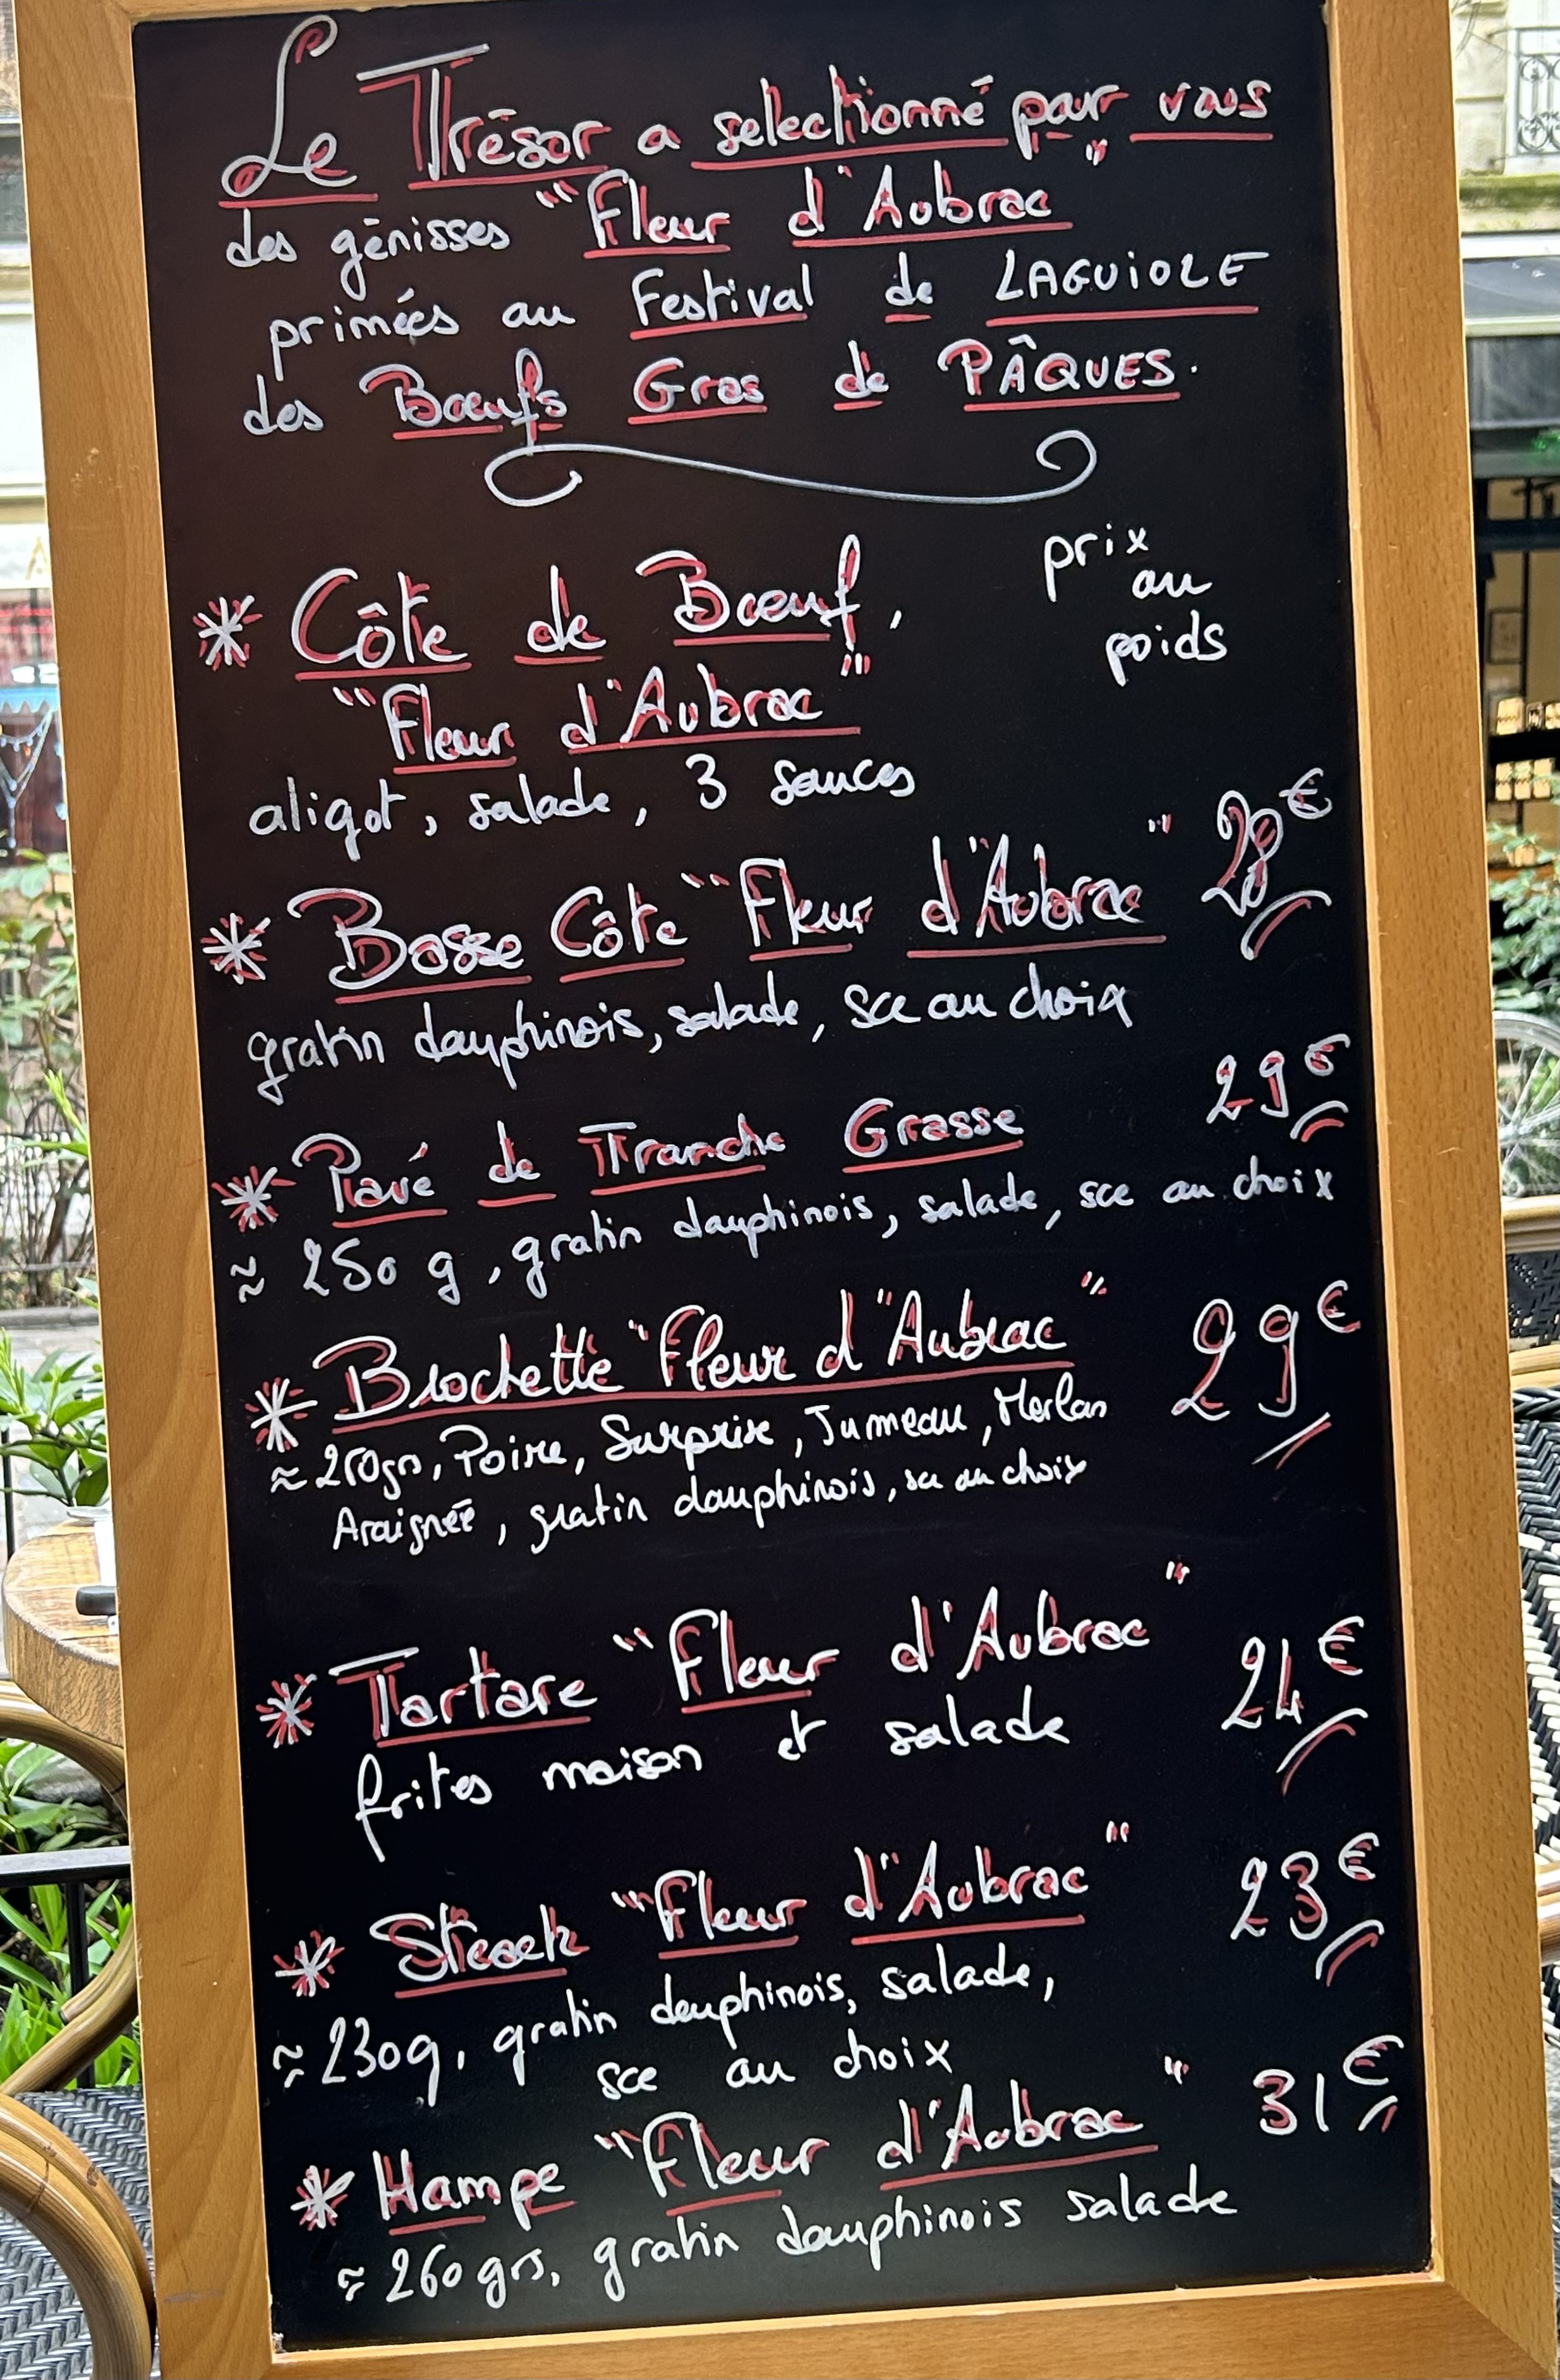 Le Trésor a selectionné pour vous
des génisses "Fleur d'Aubrac"
primées au Festival de LAGUIOLE
des Bœufs Gras de PÂQUES.
* Côte de Bœuf, prix au poids
"Fleur d'Aubrac"
aligot, salade, 3 sauces
* Basse Côte "Fleur d'Aubrac" 28€
gratin dauphinois, salade, sce au choix
* Pavé de Tranche Grasse 29€
≈ 250 g, gratin dauphinois, salade, sce au choix
* Brochette "Fleur d'Aubrac" 29€
≈ 250grs, Poire, Surprise, Jumeau, Merlan
Araignée, gratin dauphinois, sce au choix
* Tartare "Fleur d'Aubrac" 24€
frites maison et salade
* Steack "Fleur d'Aubrac" 23€
≈ 230g, gratin dauphinois, salade,
sce au choix
* Hampe "Fleur d'Aubrac" 31€
≈ 260 grs, gratin dauphinois salade